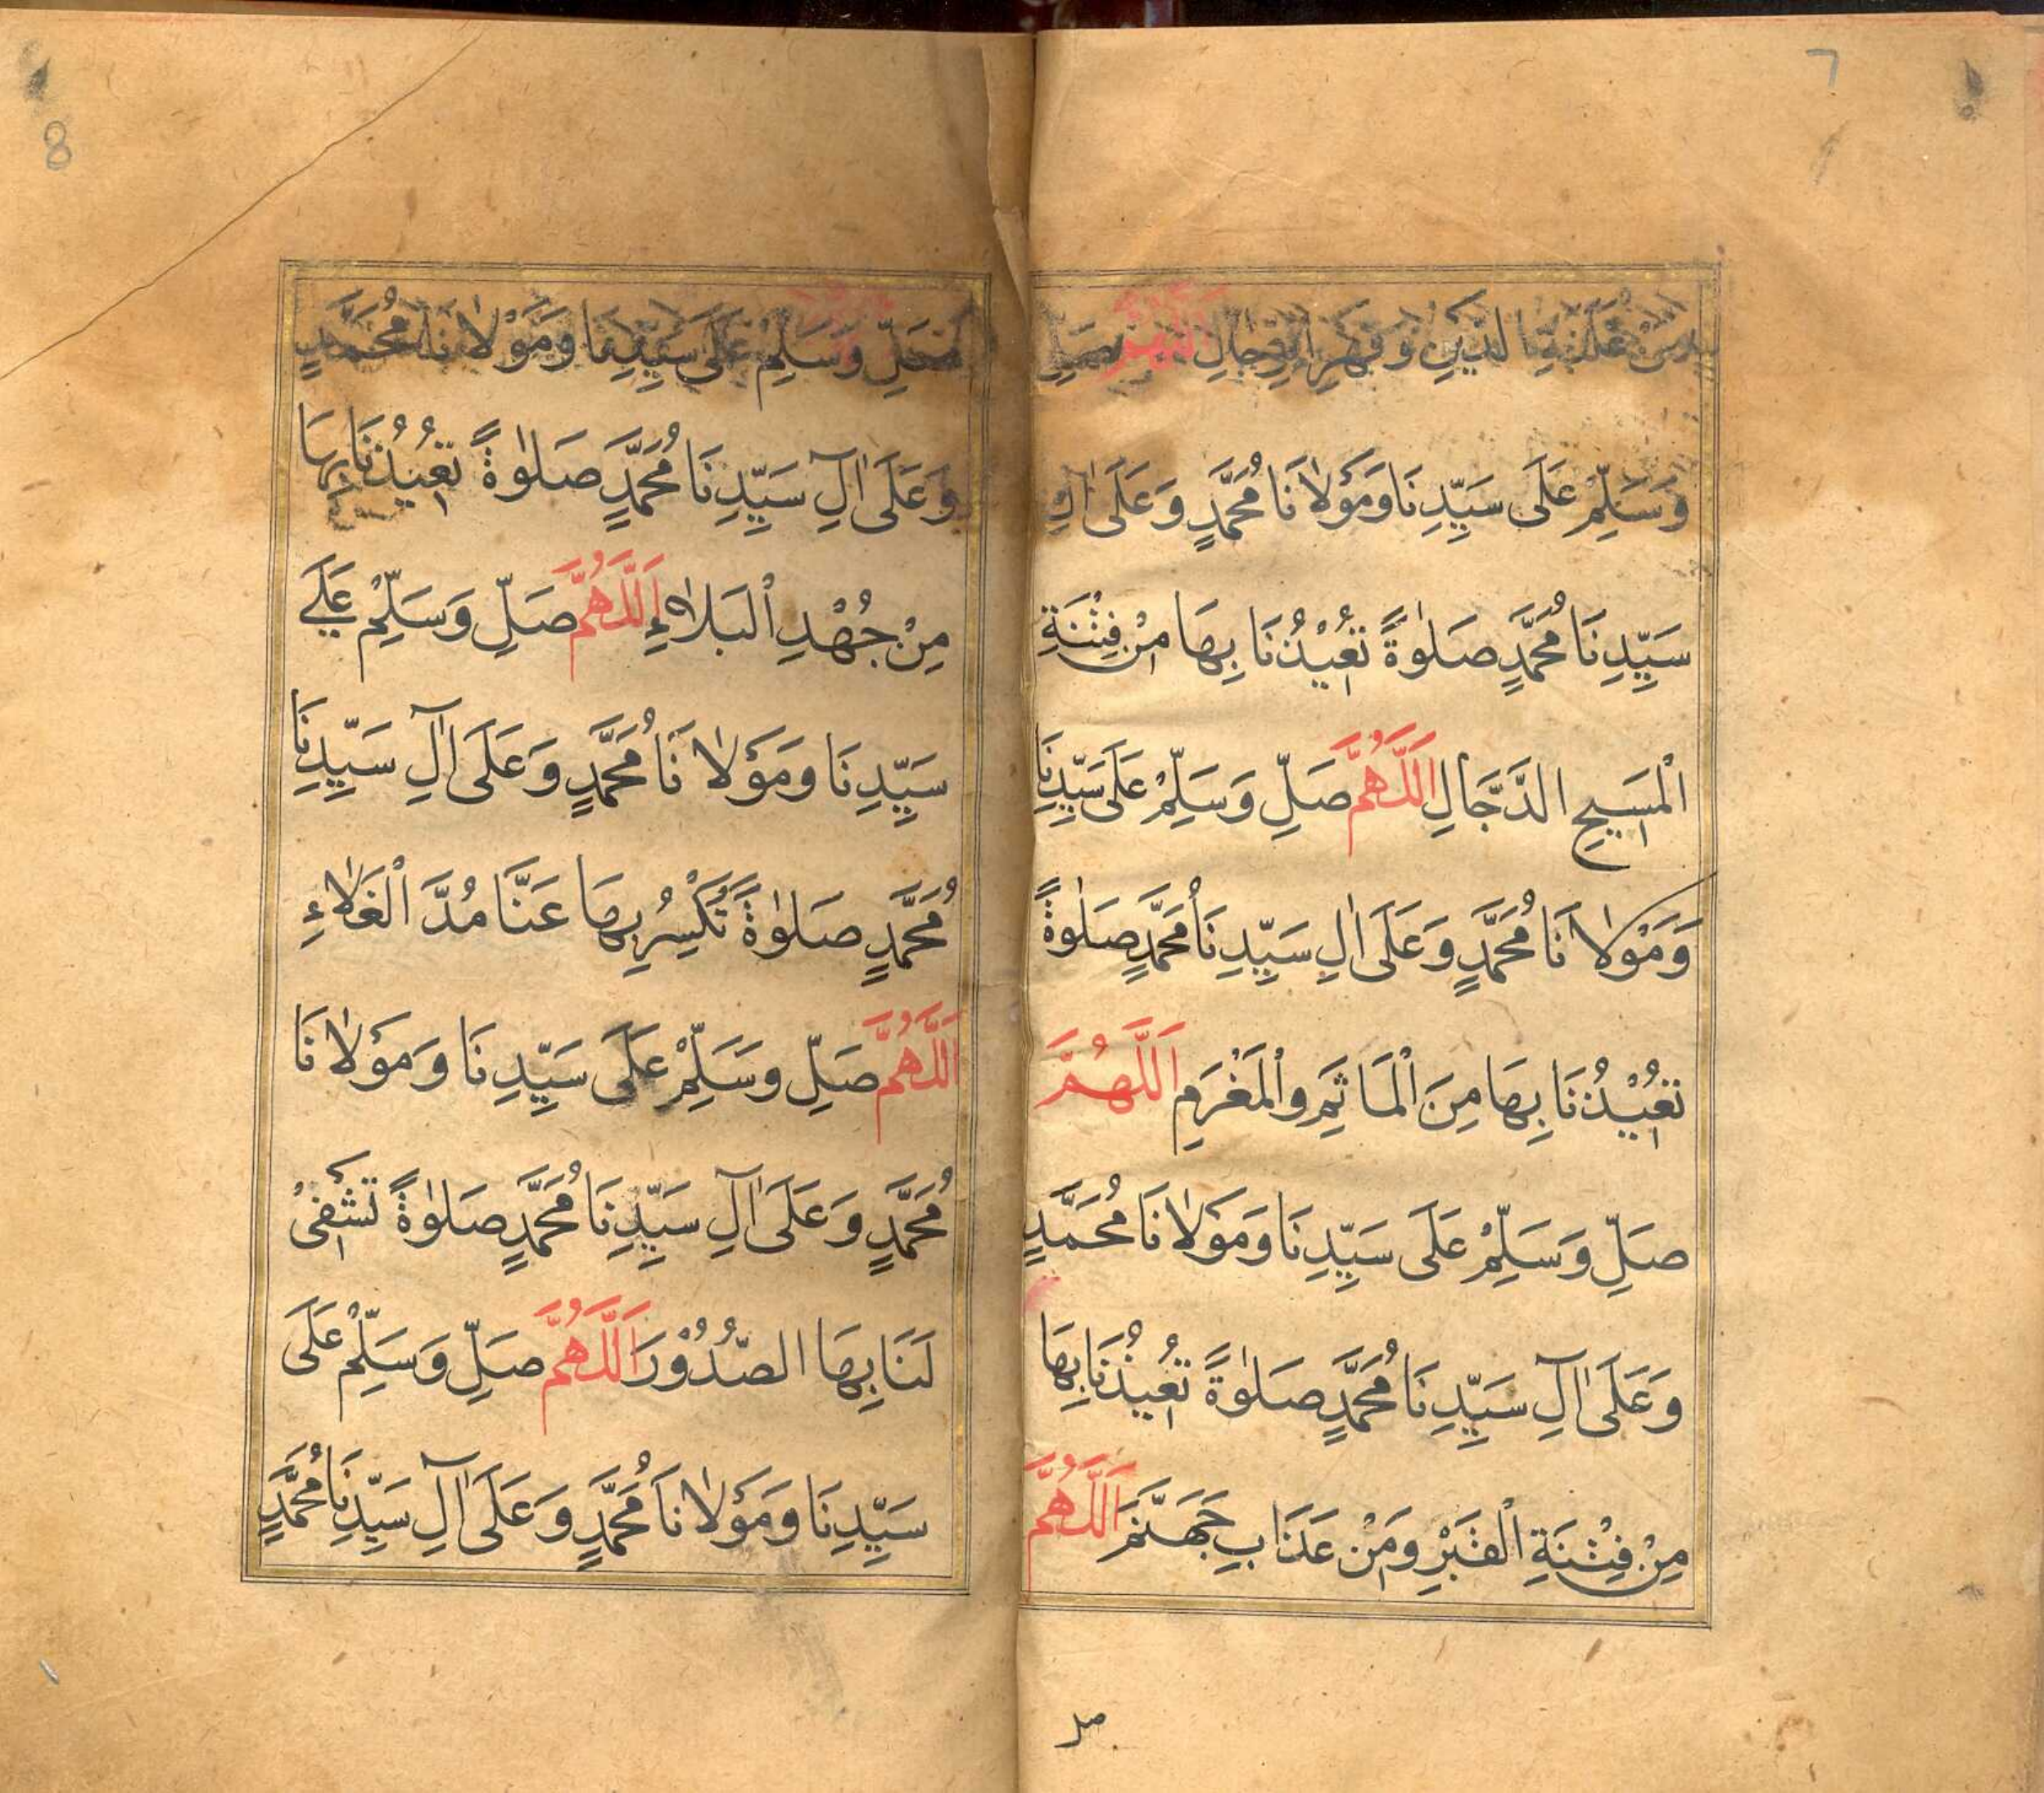 7
مِنْ غَلَبَةِ الدَّيْنِ وَقَهْرِ الرِّجَالِ اَللّٰهُمَّ صَلِّ
وَسَلِّمْ عَلَى سَيِّدِنَا وَمَوْلَانَا مُحَمَّدٍ وَعَلَى اٰلِ
سَيِّدِنَا مُحَمَّدٍ صَلٰوةً تُعِيْذُنَا بِهَا مِنْ فِتْنَةِ
الْمَسِيحِ الدَّجَّالِ اَللَّهُمَّ صَلِّ وَسَلِّمْ عَلَى سَيِّدِنَا
وَمَوْلَانَا مُحَمَّدٍ وَعَلَى اٰلِ سَيِّدِنَا مُحَمَّدٍ صَلٰوةً
تُعِيْذُنَا بِهَا مِنَ الْمَاثَمِ وَالْمَغْرَمِ اَللَّهُمَّ
صَلِّ وَسَلِّمْ عَلَى سَيِّدِنَا وَمَوْلَانَا مُحَمَّدٍ
وَعَلَى اٰلِ سَيِّدِنَا مُحَمَّدٍ صَلٰوةً تُعِيذُنَا بِهَا
مِنْ فِتْنَةِ الْقَبْرِ وَمِنْ عَذَابِ جَهَنَّمَ اَللَّهُمَّ
صل
8
صَلِّ وَسَلِّمْ عَلَى سَيِّدِنَا وَمَوْلَانَا مُحَمَّدٍ
وَعَلَى اٰلِ سَيِّدِنَا مُحَمَّدٍ صَلٰوةً تُعِيْذُنَا بِهَا
مِنْ جُهْدِ الْبَلَاءِ اَللَّهُمَّ صَلِّ وَسَلِّمْ عَلَي
سَيِّدِنَا وَمَوْلَانَا مُحَمَّدٍ وَعَلَى اٰلِ سَيِّدِنَا
مُحَمَّدٍ صَلٰوةً تُكْسِرُ بِهَا عَنَّا مُدَّ الْغَلَاءِ
اَللَّهُمَّ صَلِّ وَسَلِّمْ عَلَى سَيِّدِنَا وَمَوْلَانَا
مُحَمَّدٍ وَعَلَى اٰلِ سَيِّدِنَا مُحَمَّدٍ صَلٰوةً تَشْفِىْ
لَنَا بِهَا الصُّدُوْرَ اَللَّهُمَّ صَلِّ وَسَلِّمْ عَلَى
سَيِّدِنَا وَمَوْلَانَا مُحَمَّدٍ وَعَلَى اٰلِ سَيِّدِنَا مُحَمَّدٍ